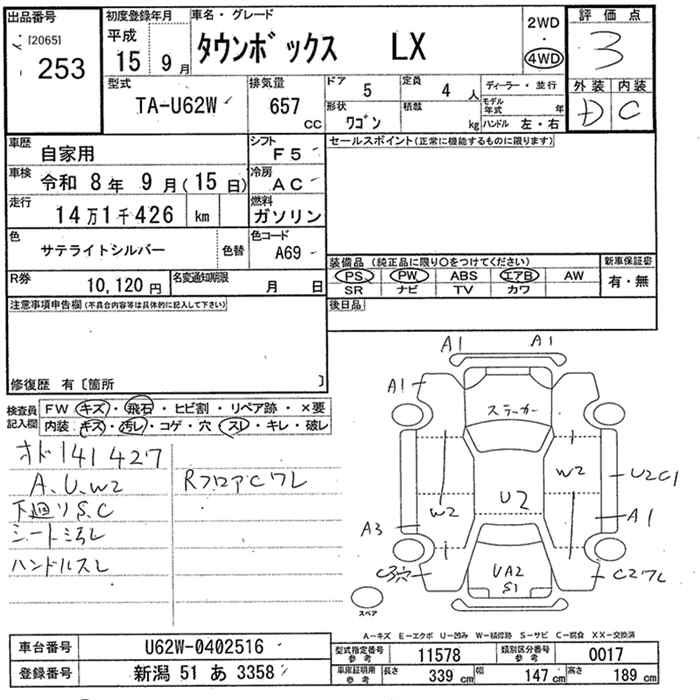 出品番号
[2065]
253
初度登録年月
平成
15 9 月
車名・グレード
タウンボックス LX
2WD
・
4WD
評価点
3
外装 内装
D C
型式
TA-U62W
排気量
657 CC
ドア 5
定員 4 人
形状 ワゴン
積載 kg
ディーラー・並行
モデル年式 年
ハンドル 左・右
車歴 自家用
シフト F5
車検 令和 8 年 9 月(15 日)
冷房 AC
走行 14万1千426 km
燃料 ガソリン
色 サテライトシルバー 色替
色コード A69
R券 10,120 円
名変通知期限 月 日
セールスポイント(正常に機能するものに限ります)
装備品 (純正品に限り○をつけてください)
PS PW ABS エアB AW
SR ナビ TV カワ
新車保証書
有・無
後日品
注意事項申告欄(不具合内容等は具体的に記入して下さい)
修復歴 有〔箇所 〕
検査員記入欄
FW キズ・飛石・ヒビ割・リペア跡・×要
内装・キズ・汚レ・コゲ・穴・スレ・キレ・破レ
オド141427
A、U、W2
下廻りS、C
シート汚レ
ハンドルスレ
RフロアCワレ
A1 A1
A1
ステッカー
W2
U2C1
U2
W2
A3
A1
C3穴
UA2
S1
C2ワレ
スペア
A−キズ E−エクボ U−凹み W−補修跡 S−サビ C−腐食 XX−交換済
車台番号 U62W-0402516
登録番号 新潟 51 あ 3358
型式指定番号 参考 11578
類別区分番号 参考 0017
車庫証明用 参考 長さ 339 cm 幅 147 cm 高さ 189 cm